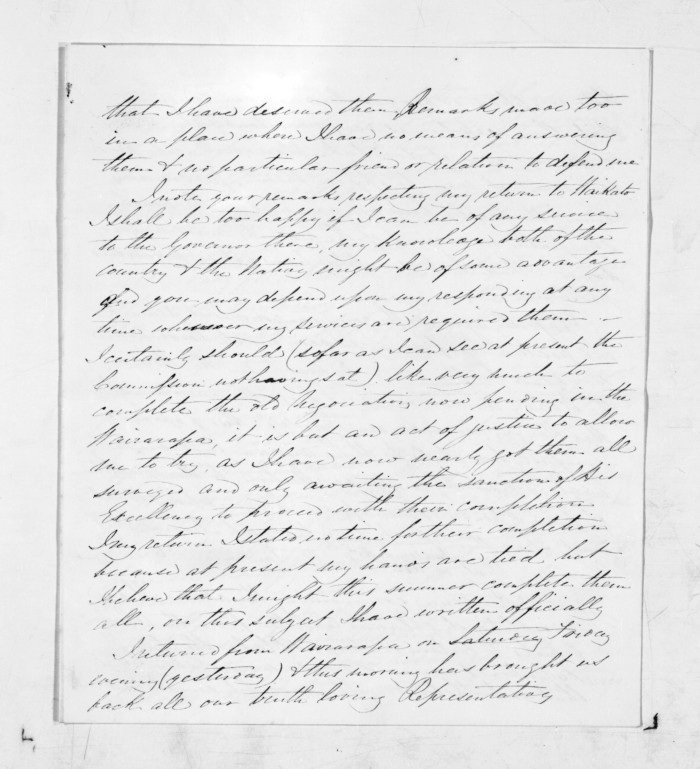 that I have deserved them. Remarks made too
in a place where I have no means of answering
them & no particular friend or relation to defend me
I note your remarks respecting my return to Waikato
I shall be too happy if I can be of any service
to the Governor there, my knowledge both of the
country & the Natives might be of some advantage
And you may depend upon my responding at any
time whenever my services are required them
I certainly should (so far as I can see at present the
Commission not having sat) like very much to
complete the old Negociations now pending in the
Wairarapa, it is but an act of justice to allow
me to try, as I have now nearly got them all
surveyed and only awaiting the sanction of His
Excellency to proceed with their completion
In my return I stated no time for their completion
because at present my hands are tied but
I believe that I might this summer complete them
all, on this subject I have written officially
I returned from Wairarapa on Saturday Friday
evening (yesterday) & this morning has brought us
back all our truth loving Representatives